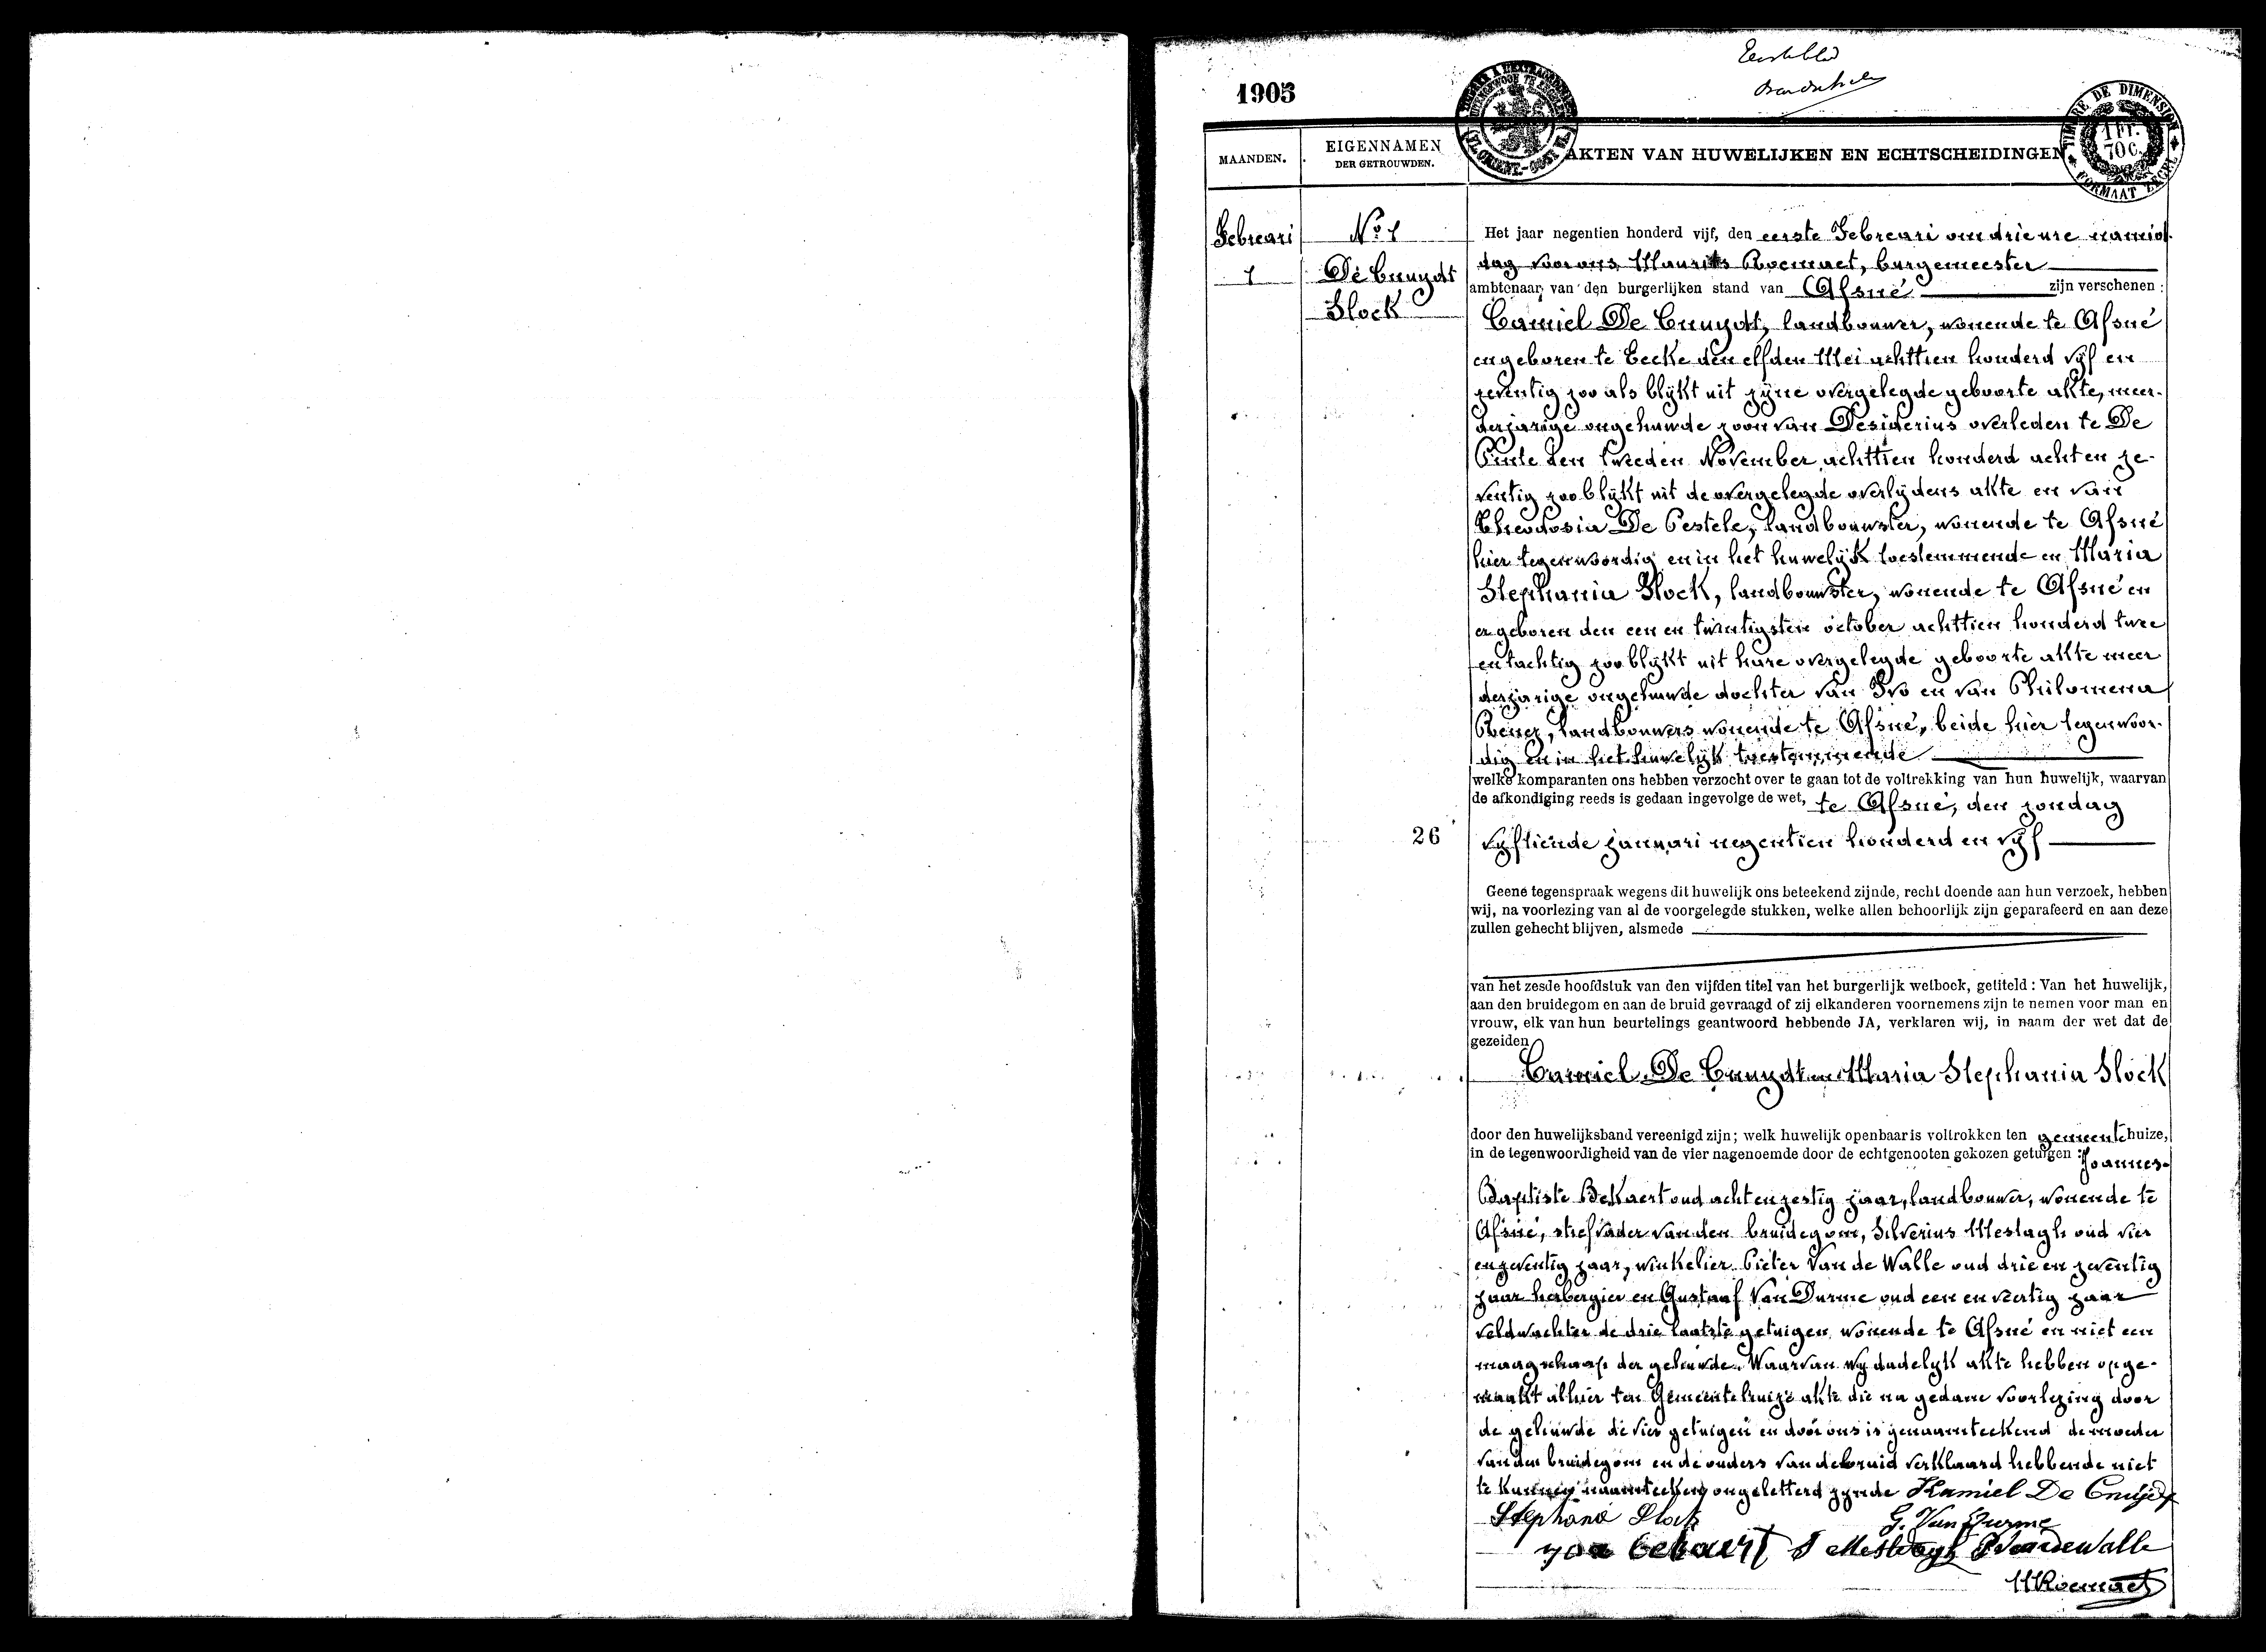 Eerste blad
1905
TIMBRE DE DIMENSION
1 Fr.
70 c.
FORMAAT ZEGEL
MAANDEN.
EIGENNAMEN
DER GETROUWDEN.
AKTEN VAN HUWELIJKEN EN ECHTSCHEIDINGEN
Febreari
1
No 1
De Cnuydt
Slock
Het jaar negentien honderd vijf, den eerste Febreari om drie ure namid-
dag voor ons Maurits Roemaet, burgemeester
ambtenaar van den burgerlijken stand van Afsné zijn verschenen :
Camiel De Cnuydt, landbouwer, wonende te Afsné
en geboren te Eecke den elfden Mei achttien honderd vijf en
zeventig zoo als blykt uit zyne overgelegde geboorte akte, meer-
derjarige ongehuwde zoon van Desiderius overleden te De
Pinte den tweeden November achttien honderd acht en ze-
ventig zoo blykt uit de overgelegde overlydens akte en van
Theodosia De Pestele, landbouwster, wonende te Afsné
hier tegenwoordig en in het huwelyk toestemmende en Maria
Stephania Slock, landbouwster, wonende te Afsné en
er geboren den een en twintigsten october achttien honderd twee
en tachtig zoo blykt uit hare overgelegde geboorte akte meer
derjarige ongehuwde dochter van Ivo en van Philomena
landbouwers wonende te Afsné, beide hier tegenwoor-
dig en in het huwelyk toestemmende
welke komparanten ons hebben verzocht over te gaan tot de voltrekking van hun huwelijk, waarvan
de afkondiging reeds is gedaan ingevolge de wet, te Afsné, den zondag
26
vyftiende januari negentien honderd en vyf
Geene tegenspraak wegens dit huwelijk ons beteekend zijnde, recht doende aan hun verzoek, hebben
wij, na voorlezing van al de voorgelegde stukken, welke allen behoorlijk zijn geparafeerd en aan deze
zullen gehecht blijven, alsmede
van het zesde hoofdstuk van den vijfden titel van het burgerlijk wetboek, getiteld : Van het huwelijk,
aan den bruidegom en aan de bruid gevraagd of zij elkanderen voornemens zijn te nemen voor man en
vrouw, elk van hun beurtelings geantwoord hebbende JA, verklaren wij, in naam der wet dat de
gezeiden
Camiel De Cnuydt en Maria Stephania Slock
door den huwelijksband vereenigd zijn ; welk huwelijk openbaar is voltrokken ten gemeentehuize,
in de tegenwoordigheid van de vier nagenoemde door de echtgenooten gekozen getuigen : Joannes-
Baptiste Bekaert oud acht en zestig jaar, landbouwer, wonende te
Afsné, stiefvader van den bruidegom, Silverius Mestagh oud vier
en zeventig jaar, winkelier Pieter Van de Walle oud drie en zeventig
jaar herbergier en Gustaaf Van Durme oud een en veertig jaar
veldwachter de drie laatste getuigen wonende te Afsné en niet een
maagschap der gehuwde. Waarvan wy dadelyk akte hebben opge-
maakt alhier ten Gemeentehuize akte die na gedane voorlezing door
de gehuwde de vier getuigen en door ons is genaamteekend de moeder
van den bruidegom en de ouders van de bruid verklaard hebbende niet
te kunnen naamteekenen ongeletterd zynde Kamiel De Cnuydt
Stephanie Slock G. Van Durme
joa bekaert S Mestdagh P Vandewalle
MRoemaet